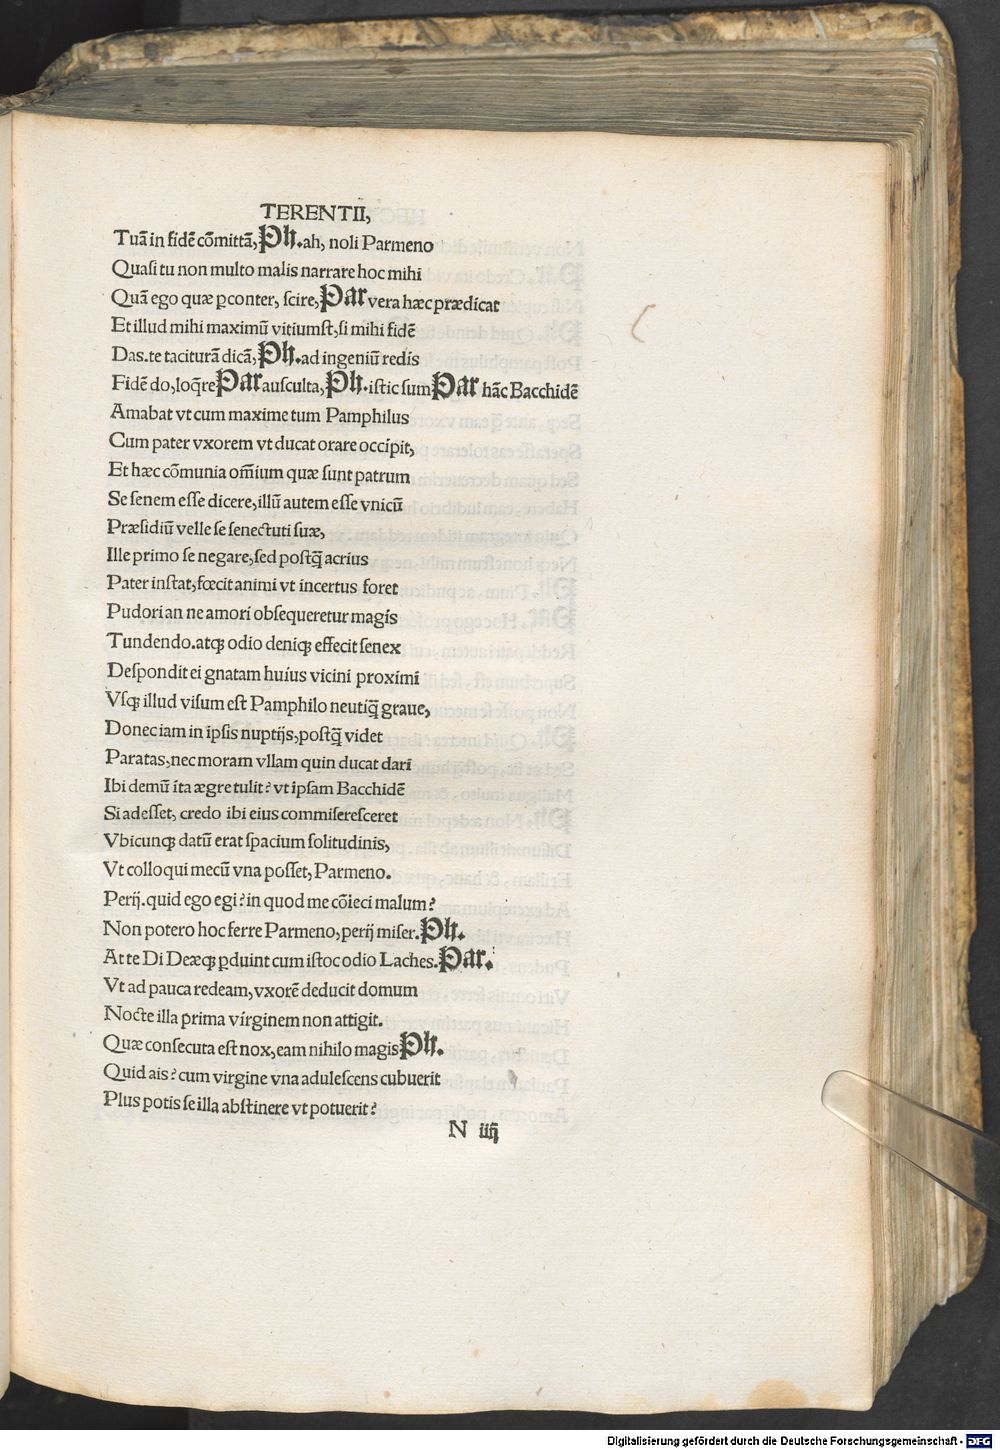 TERENTII,
Tuā in fidē cōmittā, Ph. ah, noli Parmeno
Quasi tu non multo malis narrare hoc mihi
Quā ego quæ ꝑconter, scire, Par vera hæc prædicat
Et illud mihi maximū vitiumst, si mihi fidē
Das. te taciturā dicā, Ph. ad ingeniū redis
Fidē do, loq̄re Par ausculta, Ph. istic sum Par hāc Bacchidē
Amabat vt cum maxime tum Pamphilus
Cum pater vxorem vt ducat orare occipit,
Et hæc cōmunia om̄ium quæ sunt patrum
Se senem esse dicere, illū autem esse vnicū
Præsidiū velle se senectuti suæ,
Ille primo se negare, sed postq̄ acrius
Pater instat, fœcit animi vt incertus foret
Pudori an ne amori obsequeretur magis
Tundendo. atqꝫ odio deniqꝫ effecit senex
Despondit ei gnatam huius vicini proximi
Vsqꝫ illud visum est Pamphilo neutiq̄ graue,
Donec iam in ipsis nuptijs, postq̄ videt
Paratas, nec moram vllam quin ducat dari
Ibi demū ita ægre tulit? vt ipsam Bacchidē
Si adesset, credo ibi eius commiseresceret
Vbicunqꝫ datū erat spacium solitudinis,
Vt colloqui mecū vna posset, Parmeno.
Perij. quid ego egi? in quod me cōieci malum?
Non potero hoc ferre Parmeno, perij miser. Ph.
At te Di Deæqꝫ ꝑduint cum istoc odio Laches. Par.
Vt ad pauca redeam, vxorē deducit domum
Nocte illa prima virginem non attigit.
Quæ consecuta est nox, eam nihilo magis Ph.
Quid ais? cum virgine vna adulescens cubuerit
Plus potis se illa abstinere vt potuerit?
N iiij
Digitalisierung gefördert durch die Deutsche Forschungsgemeinschaft - DFG